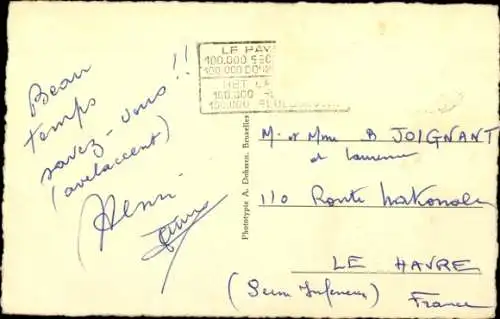 Beau
temps
savez-vous !!
(avelaccent)
Henri
LE PAY
100.000
100.000
HET
100.000
100.000
Phototypie A. Dohmen, Bruxelles
M. et Mme B JOIGNANT
et Laurence
110 Route Nationale
LE HAVRE
(Seine Inferieure)
France